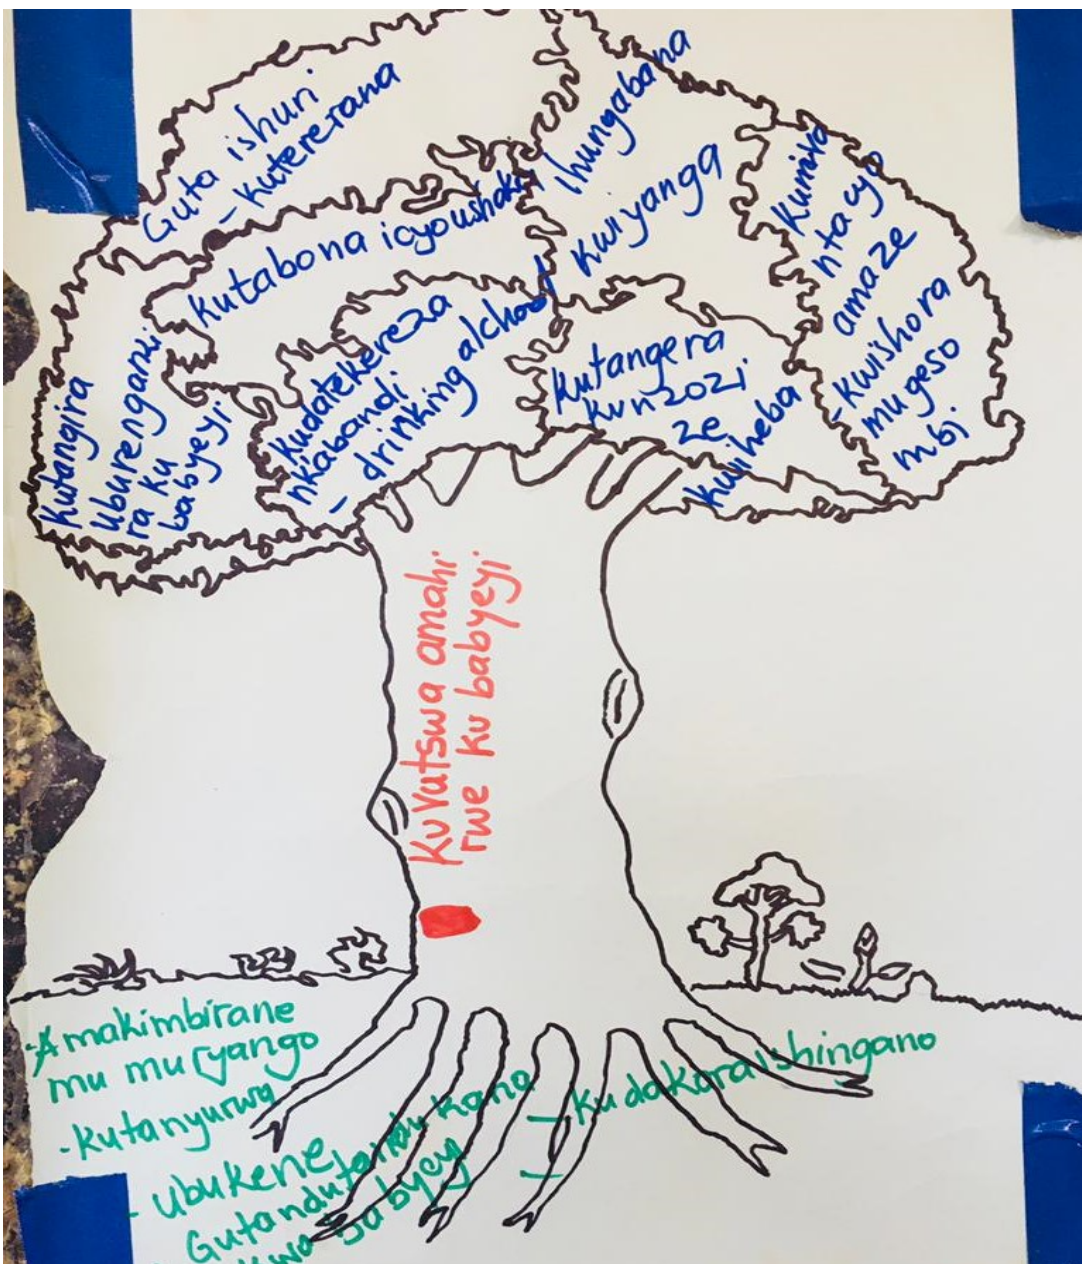 Guta ishuri
- kutererana
kutabona icyoushaka
Ihungabana
kwiyanga
kumira
ntacyo
amaze
- kwishora
mugeso
mbi
kutangira
uburenganzi
ra ku
babyeyi
kudatekereza
nkabandi
- drinking alchool
kutangera
kunzozi
ze
kwiheba
kuvutswa amahi
rwe ku babyeyi
- Amakimbirane
mu muryango
- kutanyurwa
- ubukene
Gutandukana
kwa babyey
- kudakora ishingano
-